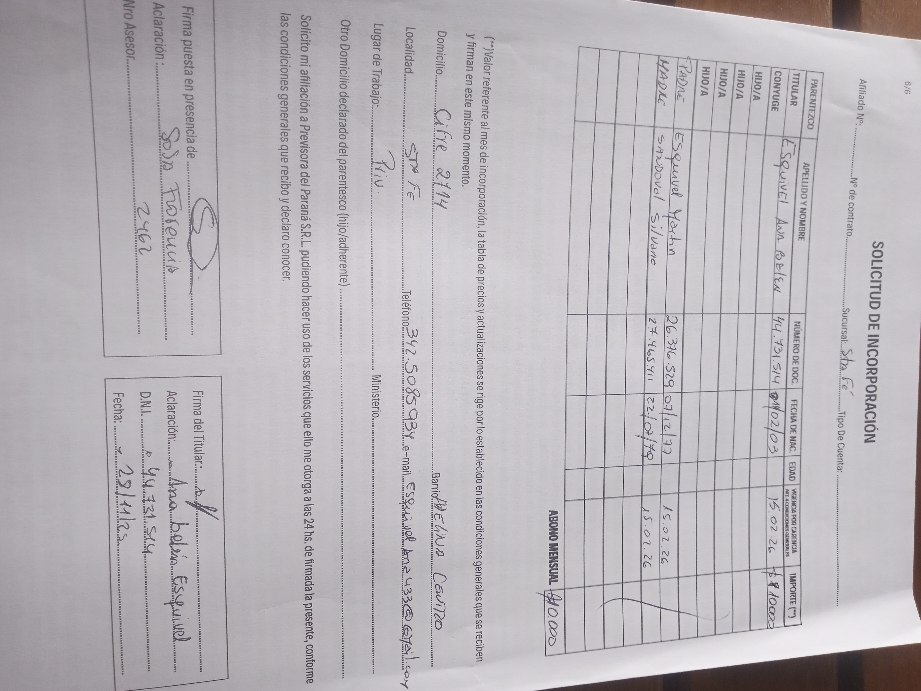 6/6
SOLICITUD DE INCORPORACIÓN
Afiliado Nº: Nº de contrato Sucursal: Sta Fé Tipo De Cuenta:
PARENTEZCO APELLIDO Y NOMBRE NÚMERO DE DOC. FECHA DE NAC. EDAD VIGENCIA POR CARENCIA IMPORTE (**)
TITULAR ESQUIVEL ANA BELEN 44.731.514 02/03 15.02.26 $10000
CONYUGE
HIJO/A
HIJO/A
HIJO/A
HIJO/A
PADRE ESQUIVEL Martin 26.376.529 07/12/77 15.02.26
MADRE SANDOVAL Silvana 27.465.411 22/07/79 15.02.26
ABONO MENSUAL $10.000
(**)Valor referente al mes de incorporación, la tabla de precios y actualizaciones se rige por lo establecido en las condiciones generales que se reciben
y firman en este mismo momento.
Domicilio Cafre 2714 Barrio CENTRO
Localidad Sta FE Teléfono 342.5085934 e-mail
Lugar de Trabajo: Priv. Ministerio
Otro Domicilio declarado del parentesco (hijo/adherente)
Solicito mi afiliación a Previsora del Paraná S.R.L. pudiendo hacer uso de los servicios que ello me otorga a las 24 hs. de firmada la presente, conforme
las condiciones generales que recibo y declaro conocer.
Firma puesta en presencia de
Aclaración: Sosa Florencia
Nro Asesor 2462
Firma del Titular:
Aclaración: Ana belén Esquivel
D.N.I. 44.731.514
Fecha: 28/11/25